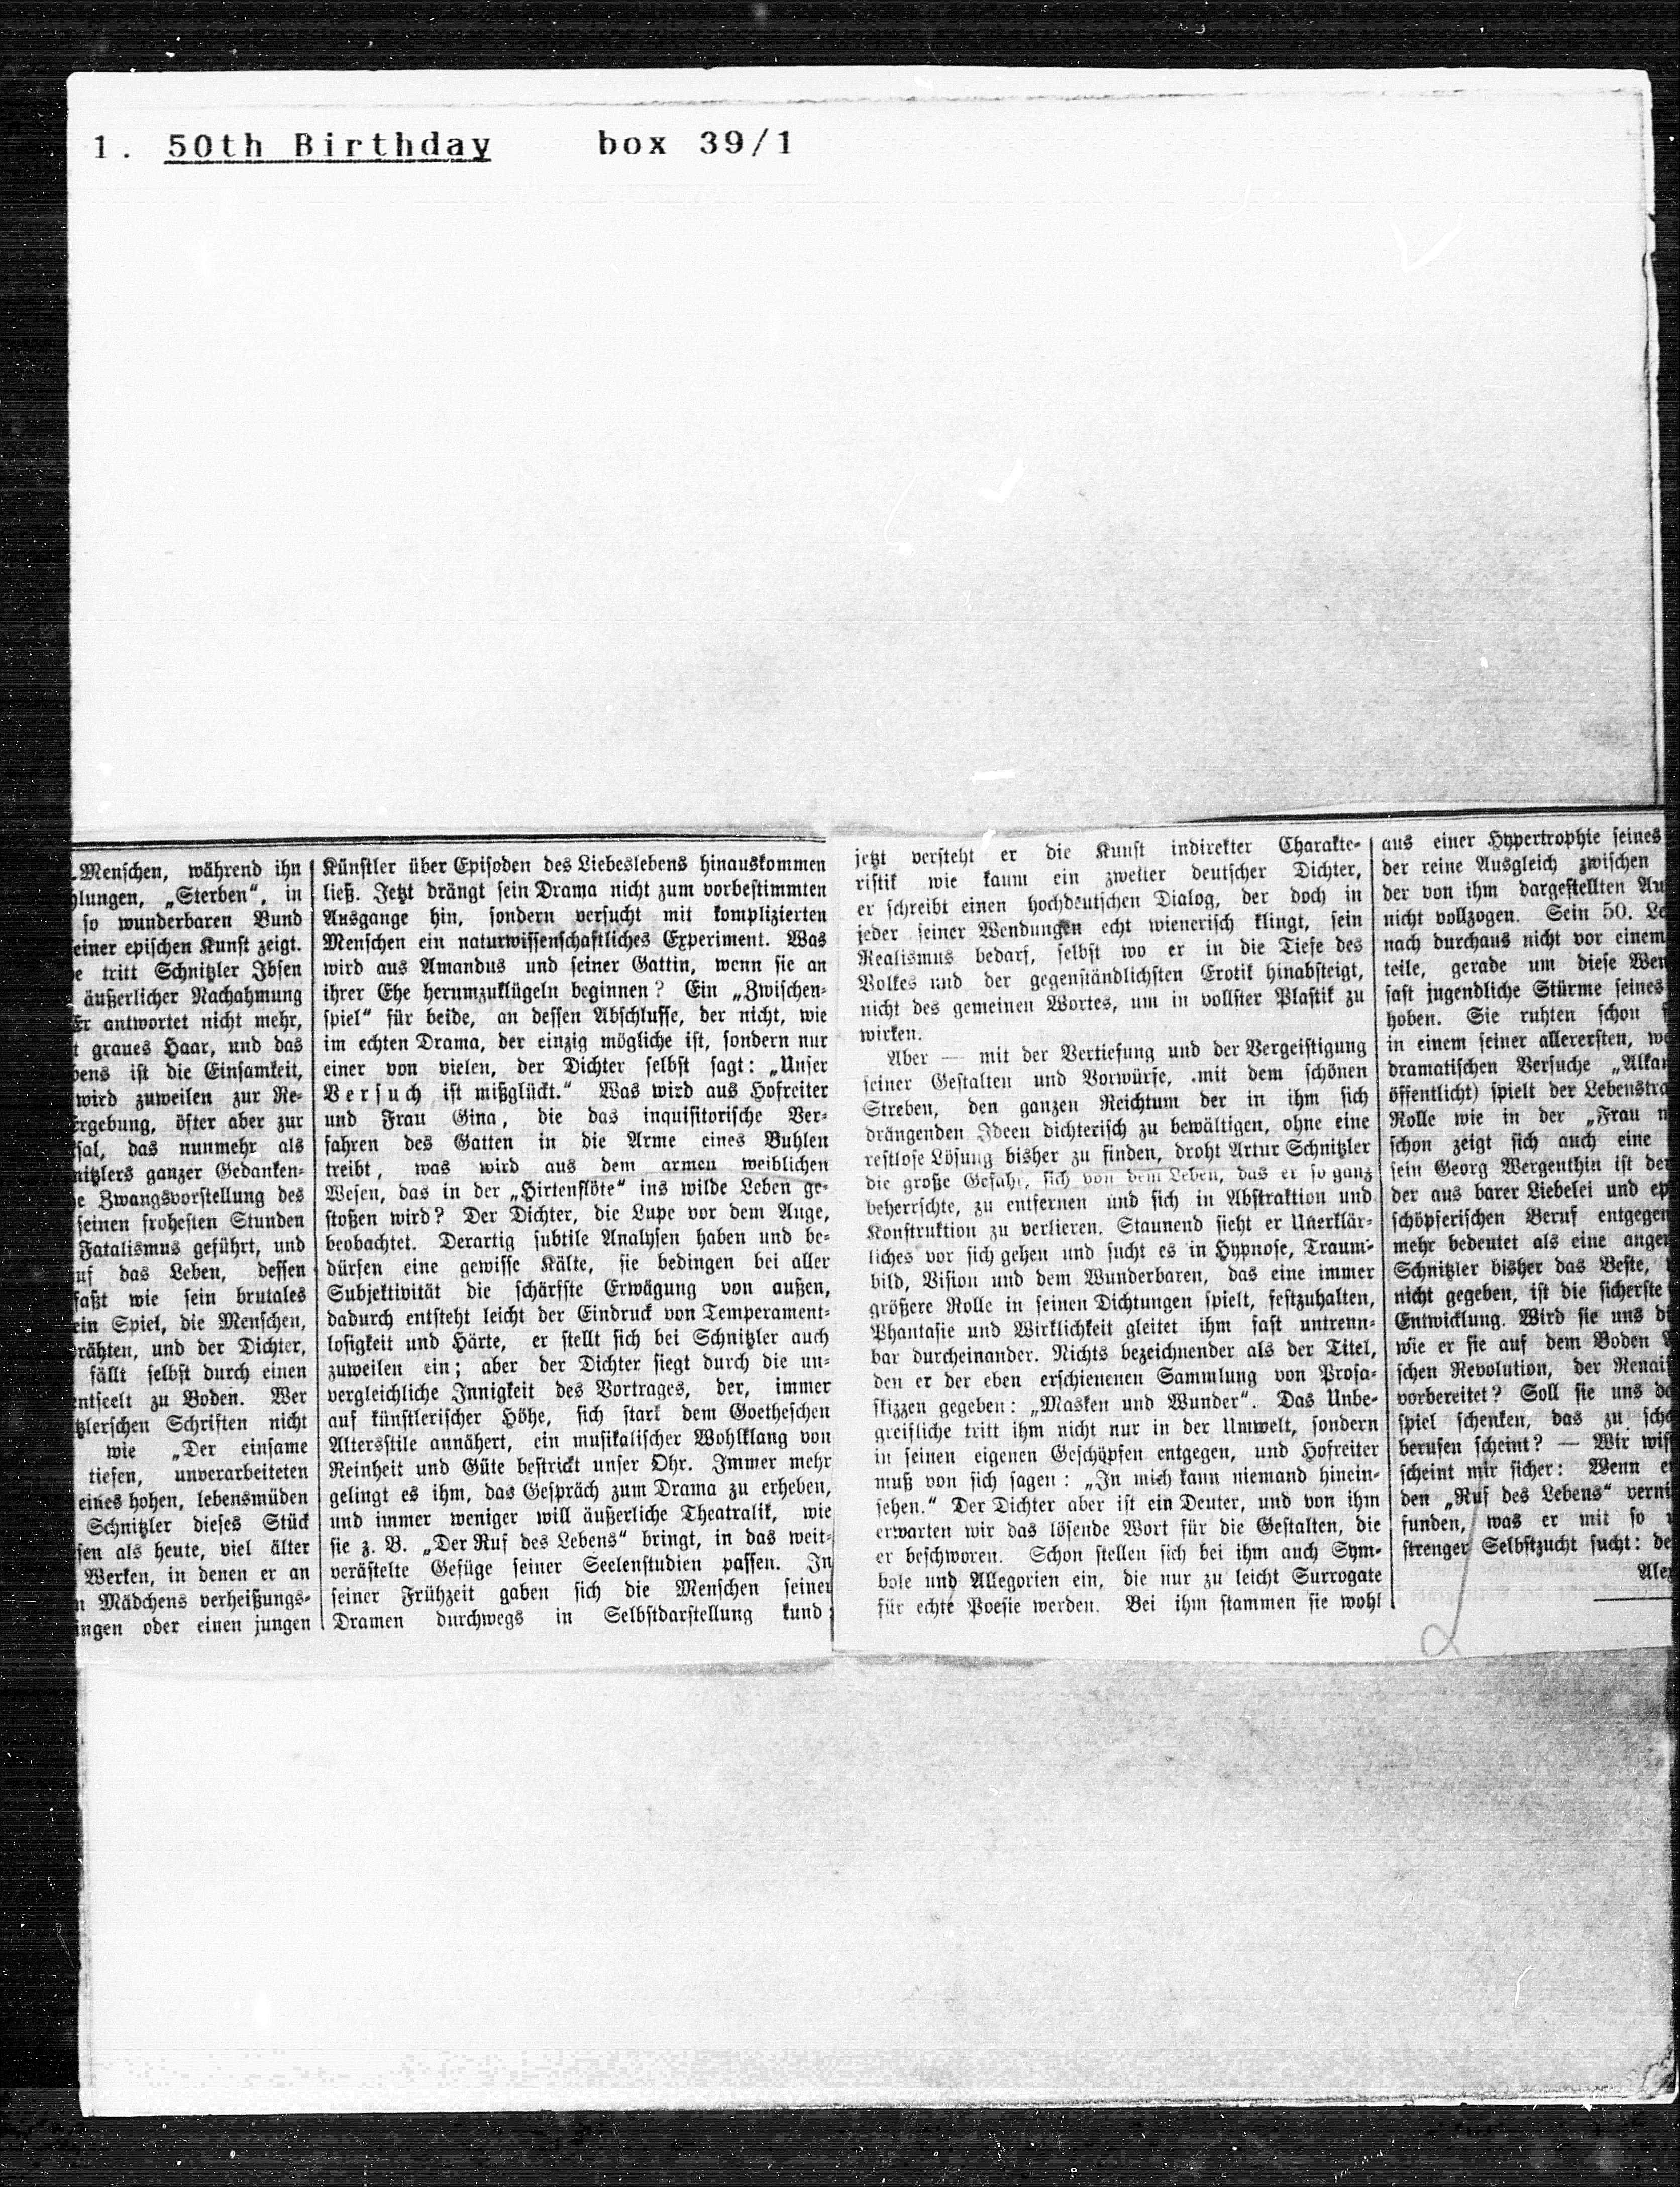 1. 50th Birthday box 39/1
Menschen, während ihn
hlungen, „Sterben“, in
so wunderbaren Bund
einer epischen Kunst zeigt.
e tritt Schnitzler Ibsen
äußerlicher Nachahmung
Er antwortet nicht mehr,
t graues Haar, und das
bens ist die Einsamkeit,
wird zuweilen zur Re-
Ergebung, öfter aber zur
sal, das nunmehr als
nitzlers ganzer Gedanken-
e Zwangsvorstellung des
seinen frohesten Stunden
Fatalismus geführt, und
uf das Leben, dessen
faßt wie sein brutales
ein Spiel, die Menschen,
rähten, und der Dichter,
fällt selbst durch einen
entseelt zu Boden. Wer
tzlerschen Schriften nicht
wie „Der einsame
tiefen, unverarbeiteten
eines hohen, lebensmüden
Schnitzler dieses Stück
sen als heute, viel älter
Werken, in denen er an
n Mädchens verheißungs-
ingen oder einen jungen
Künstler über Episoden des Liebeslebens hinauskommen
ließ. Jetzt drängt sein Drama nicht zum vorbestimmten
Ausgange hin, sondern versucht mit komplizierten
Menschen ein naturwissenschaftliches Experiment. Was
wird aus Amandus und seiner Gattin, wenn sie an
ihrer Ehe herumzuklügeln beginnen? Ein „Zwischen-
spiel“ für beide, an dessen Abschlusse, der nicht, wie
im echten Drama, der einzig mögliche ist, sondern nur
einer von vielen, der Dichter selbst sagt: „Unser
Versuch ist mißglückt.“ Was wird aus Hofreiter
und Frau Gina, die das inquisitorische Ver-
fahren des Gatten in die Arme eines Buhlen
treibt, was wird aus dem armen weiblichen
Wesen, das in der „Hirtenflöte“ ins wilde Leben ge-
stoßen wird? Der Dichter, die Lupe vor dem Auge,
beobachtet. Derartig subtile Analysen haben und be-
dürfen eine gewisse Kälte, sie bedingen bei aller
Subjektivität die schärfste Erwägung von außen,
dadurch entsteht leicht der Eindruck von Temperament-
losigkeit und Härte, er stellt sich bei Schnitzler auch
zuweilen ein; aber der Dichter siegt durch die un-
vergleichliche Innigkeit des Vortrages, der, immer
auf künstlerischer Höhe, sich stark dem Goetheschen
Altersstile annähert, ein musikalischer Wohlklang von
Reinheit und Güte bestrickt unser Ohr. Immer mehr
gelingt es ihm, das Gespräch zum Drama zu erheben,
und immer weniger will äußerliche Theatralik, wie
sie z. B. „Der Ruf des Lebens“ bringt, in das weit-
verästelte Gefüge seiner Seelenstudien passen. In
seiner Frühzeit gaben sich die Menschen seiner
Dramen durchwegs in Selbstdarstellung kund;
jetzt versteht er die Kunst indirekter Charakte-
ristik wie kaum ein zweiter deutscher Dichter,
er schreibt einen hochdeutschen Dialog, der doch in
jeder seiner Wendungen echt wienerisch klingt, sein
Realismus bedarf, selbst wo er in die Tiefe des
Volkes und der gegenständlichsten Erotik hinabsteigt,
nicht des gemeinen Wortes, um in vollster Plastik zu
wirken.
Aber — mit der Vertiefung und der Vergeistigung
seiner Gestalten und Vorwürfe, mit dem schönen
Streben, den ganzen Reichtum der in ihm sich
drängenden Ideen dichterisch zu bewältigen, ohne eine
restlose Lösung bisher zu finden, droht Artur Schnitzler
die große Gefahr, sich von dem Leben, das er so ganz
beherrschte, zu entfernen und sich in Abstraktion und
Konstruktion zu verlieren. Staunend sieht er Unerklär-
liches vor sich gehen und sucht es in Hypnose, Traum-
bild, Vision und dem Wunderbaren, das eine immer
größere Rolle in seinen Dichtungen spielt, festzuhalten,
Phantasie und Wirklichkeit gleitet ihm fast untrenn-
bar durcheinander. Nichts bezeichnender als der Titel,
den er der eben erschienenen Sammlung von Prosa-
skizzen gegeben: „Masken und Wunder“. Das Unbe-
greifliche tritt ihm nicht nur in der Umwelt, sondern
in seinen eigenen Geschöpfen entgegen, und Hofreiter
muß von sich sagen: „In mich kann niemand hinein-
sehen.“ Der Dichter aber ist ein Deuter, und von ihm
erwarten wir das lösende Wort für die Gestalten, die
er beschworen. Schon stellen sich bei ihm auch Sym-
bole und Allegorien ein, die nur zu leicht Surrogate
für echte Poesie werden. Bei ihm stammen sie wohl
aus einer Hypertrophie seines
der reine Ausgleich zwischen
der von ihm dargestellten Au
nicht vollzogen. Sein 50. Le
nach durchaus nicht vor einem
teile, gerade um diese Wen
fast jugendliche Stürme seines
hoben. Sie ruhten schon
in einem seiner allerersten, we
dramatischen Versuche „Alkan
öffentlicht) spielt der Lebenstra
Rolle wie in der „Frau m
schon zeigt sich auch eine
sein Georg Wergenthin ist der
der aus barer Liebelei und ep
schöpferischen Beruf entgegen
mehr bedeutet als eine angen
Schnitzler bisher das Beste,
nicht gegeben, ist die sicherste
Entwicklung. Wird sie uns di
wie er sie auf dem Boden
schen Revolution, der Renais
vorbereitet? Soll sie uns da
spiel schenken, das zu scha
berufen scheint? — Wir wiss
scheint mir sicher: Wenn e
den „Ruf des Lebens“ verni
funden, was er mit so
strenger Selbstzucht sucht: de
Alex